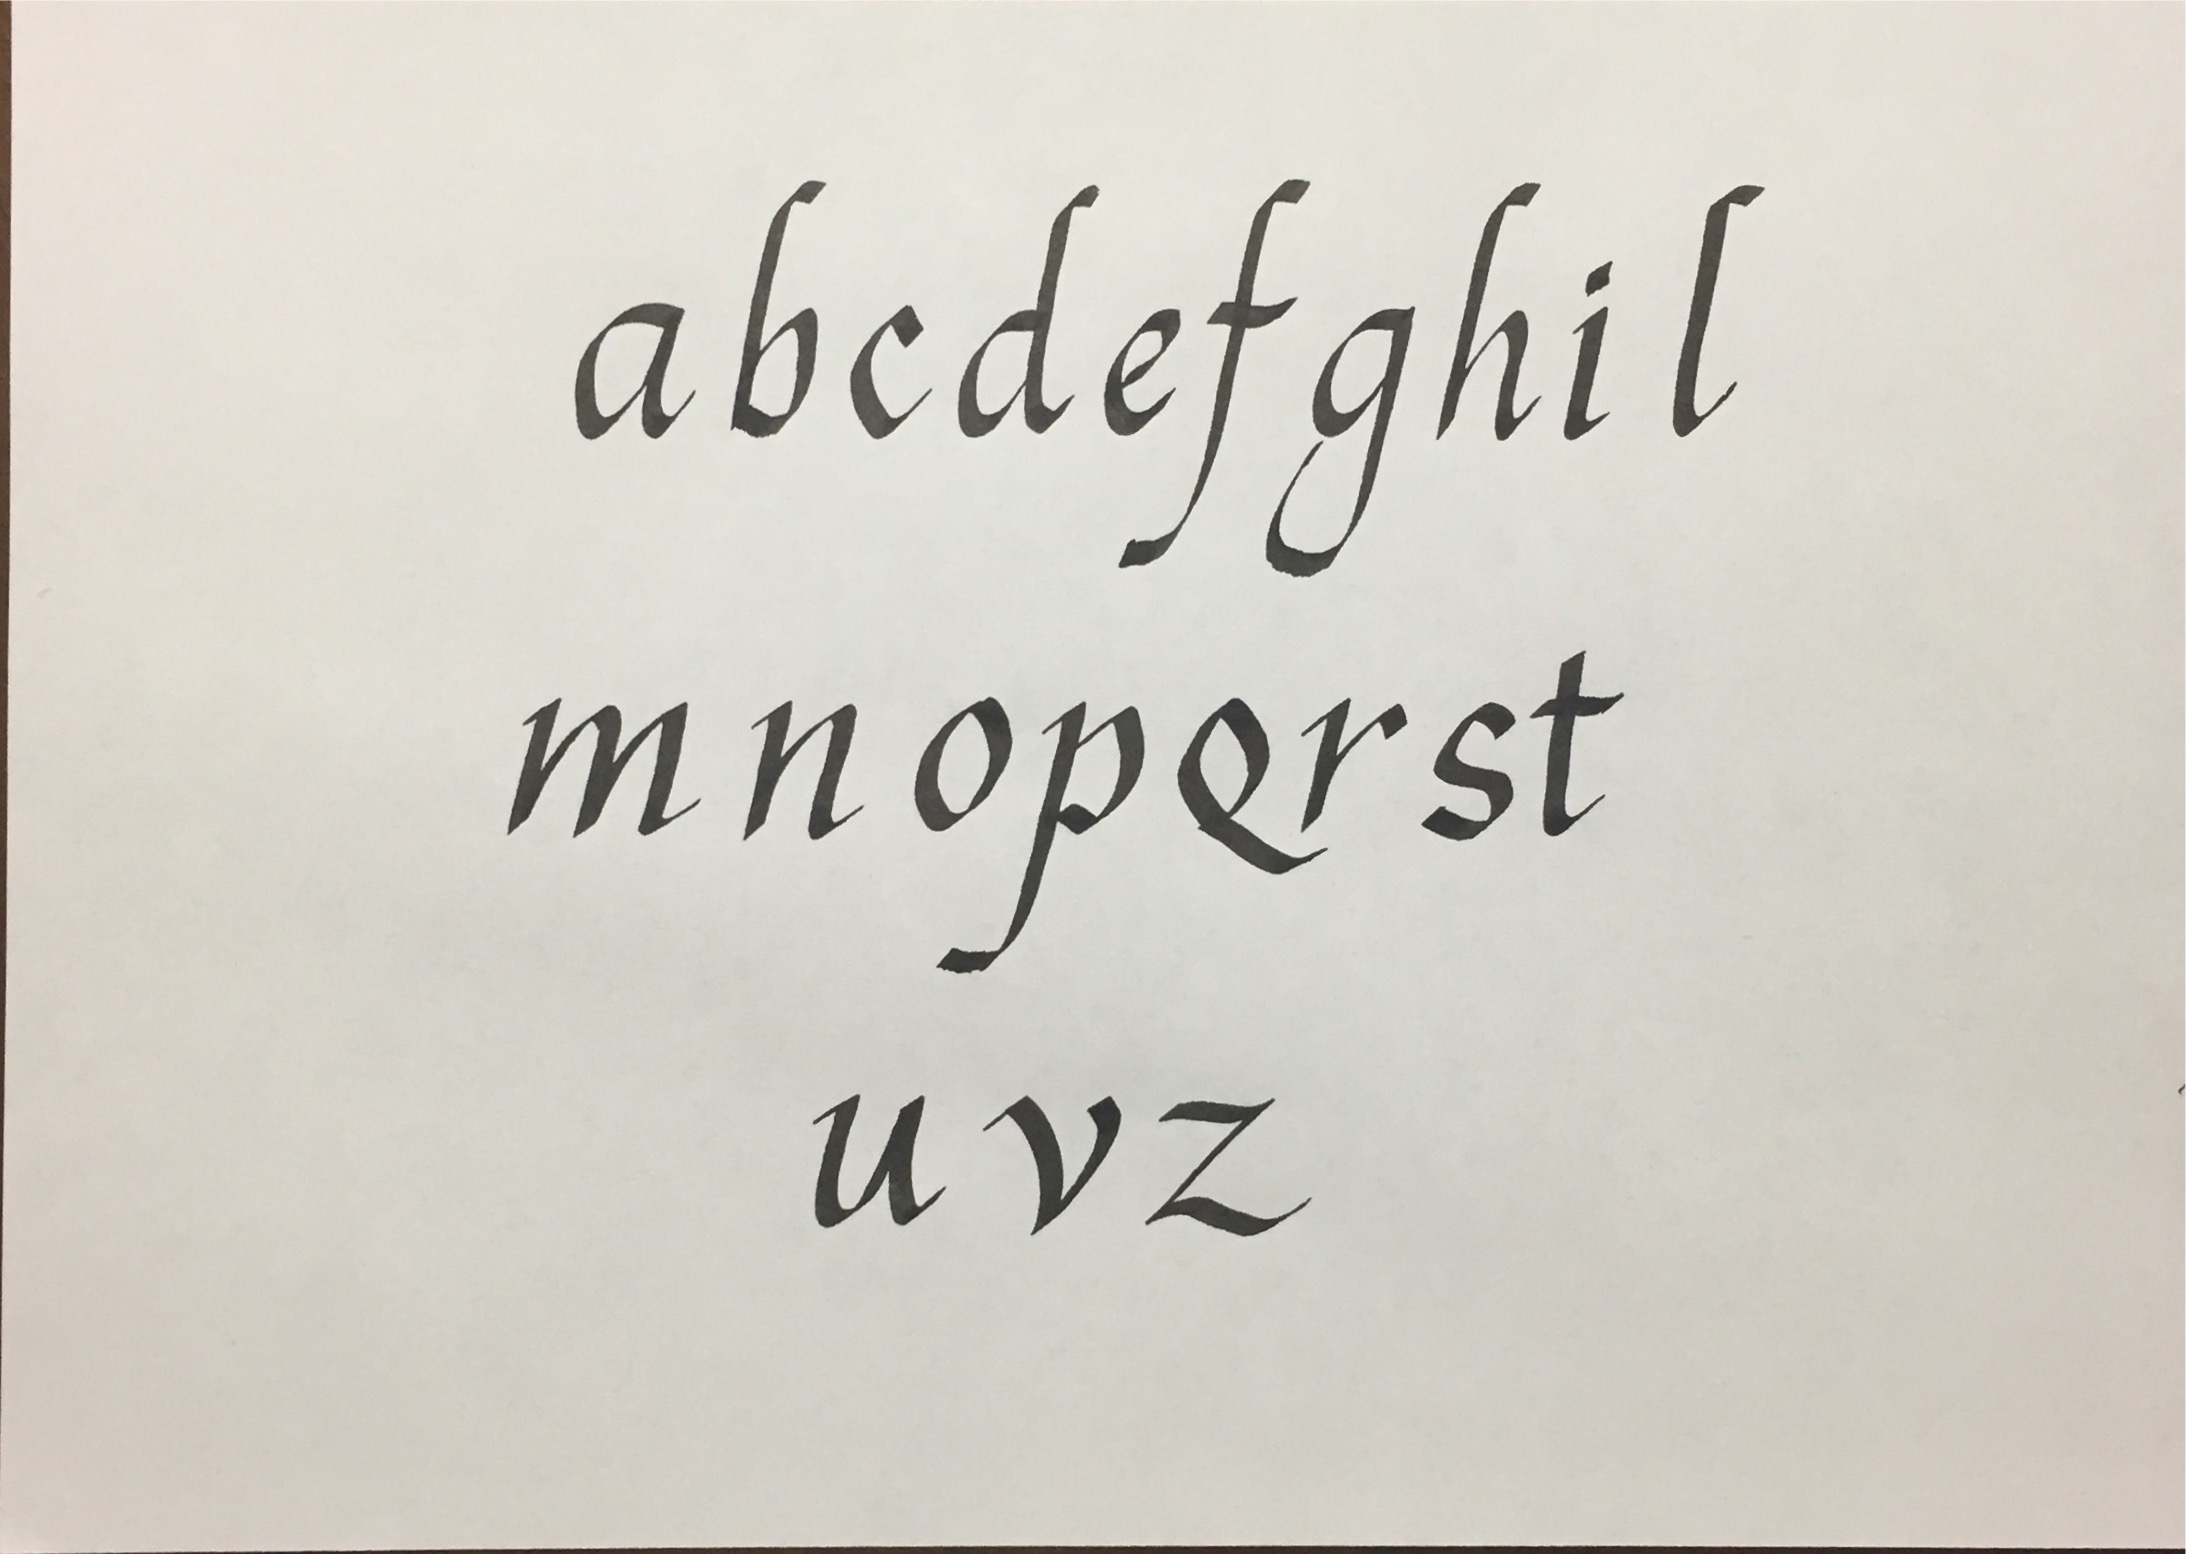 abcdefghil
mnopQrst
uvz